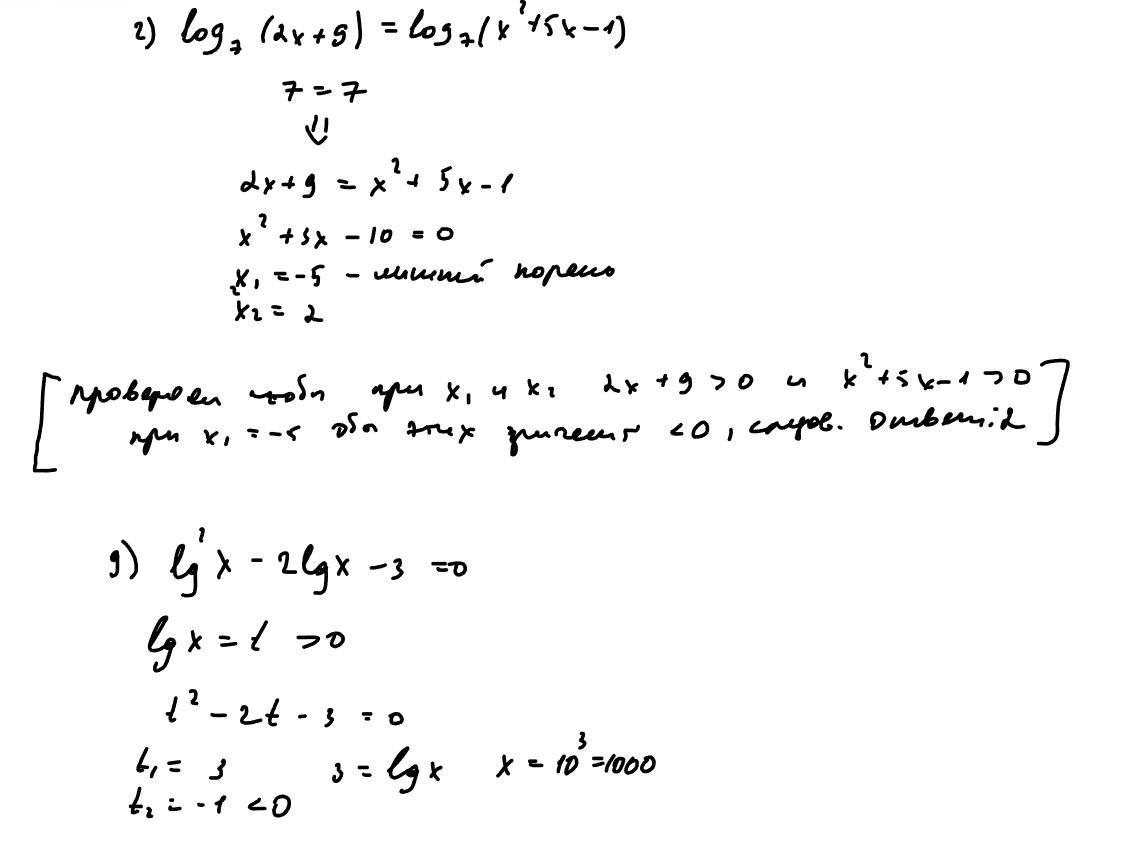 2) log₇ (2x+9) = log₇(x²+5x-1)
7 = 7
⇓
2x+9 = x²+ 5x-1
x² +3x - 10 = 0
x₁ = -5 - лишний корень
x₂ = 2
[ проверяем чтобы при x₁ и x₂ 2x + 9 > 0 и x²+5x-1 > 0
при x₁ = -5 оба этих < 0, следов. Ответ: 2 ]
3) lg²x - 2lgx - 3 = 0
lg x = t > 0
t² - 2t - 3 = 0
t₁ = 3 3 = lg x x = 10³ = 1000
t₂ = -1 < 0